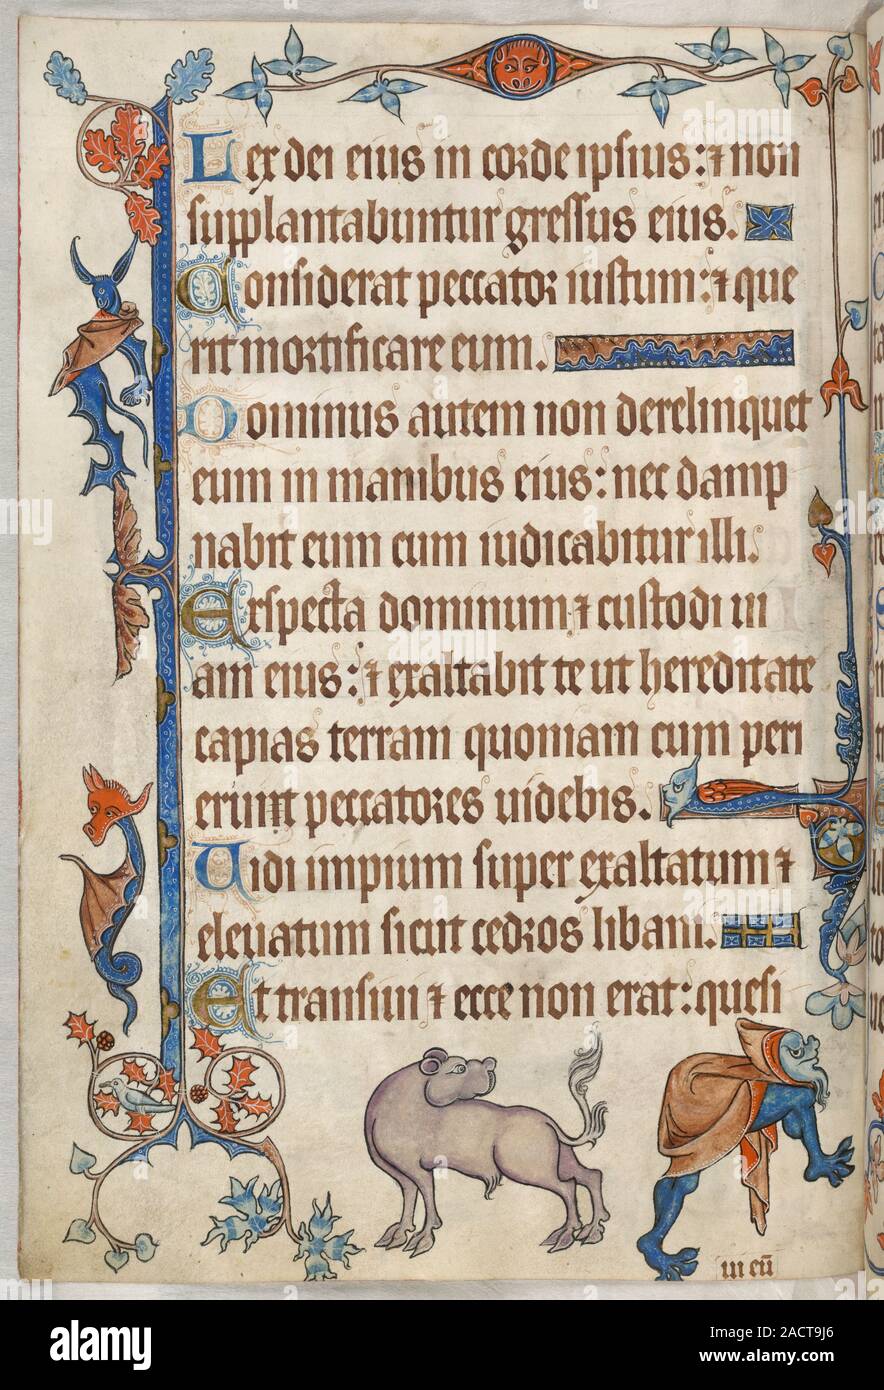 Lex dei eius in corde ipsius: ⁊ non
supplantabuntur gressus eius.
Considerat peccator iustum: ⁊ que
rit mortificare eum.
Dominus autem non derelinquet
eum in manibus eius: nec damp
nabit eum cum iudicabitur illi.
Exspecta dominum ⁊ custodi ui
am eius: ⁊ exaltabit te ut hereditate
capias terram quoniam cum peri
erunt peccatores uidebis.
Uidi impium super exaltatum ⁊
eleuatum sicut cedros libani.
Et transiui ⁊ ecce non erat: quesi
ui eū
alamy
Image ID: 2ACT9J6
www.alamy.com